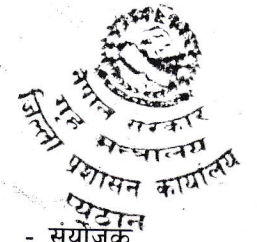 नेपाल सरकार
गृह मन्त्रालय
जिल्ला प्रशासन कार्यालय
प्यूठान
- संयोजक